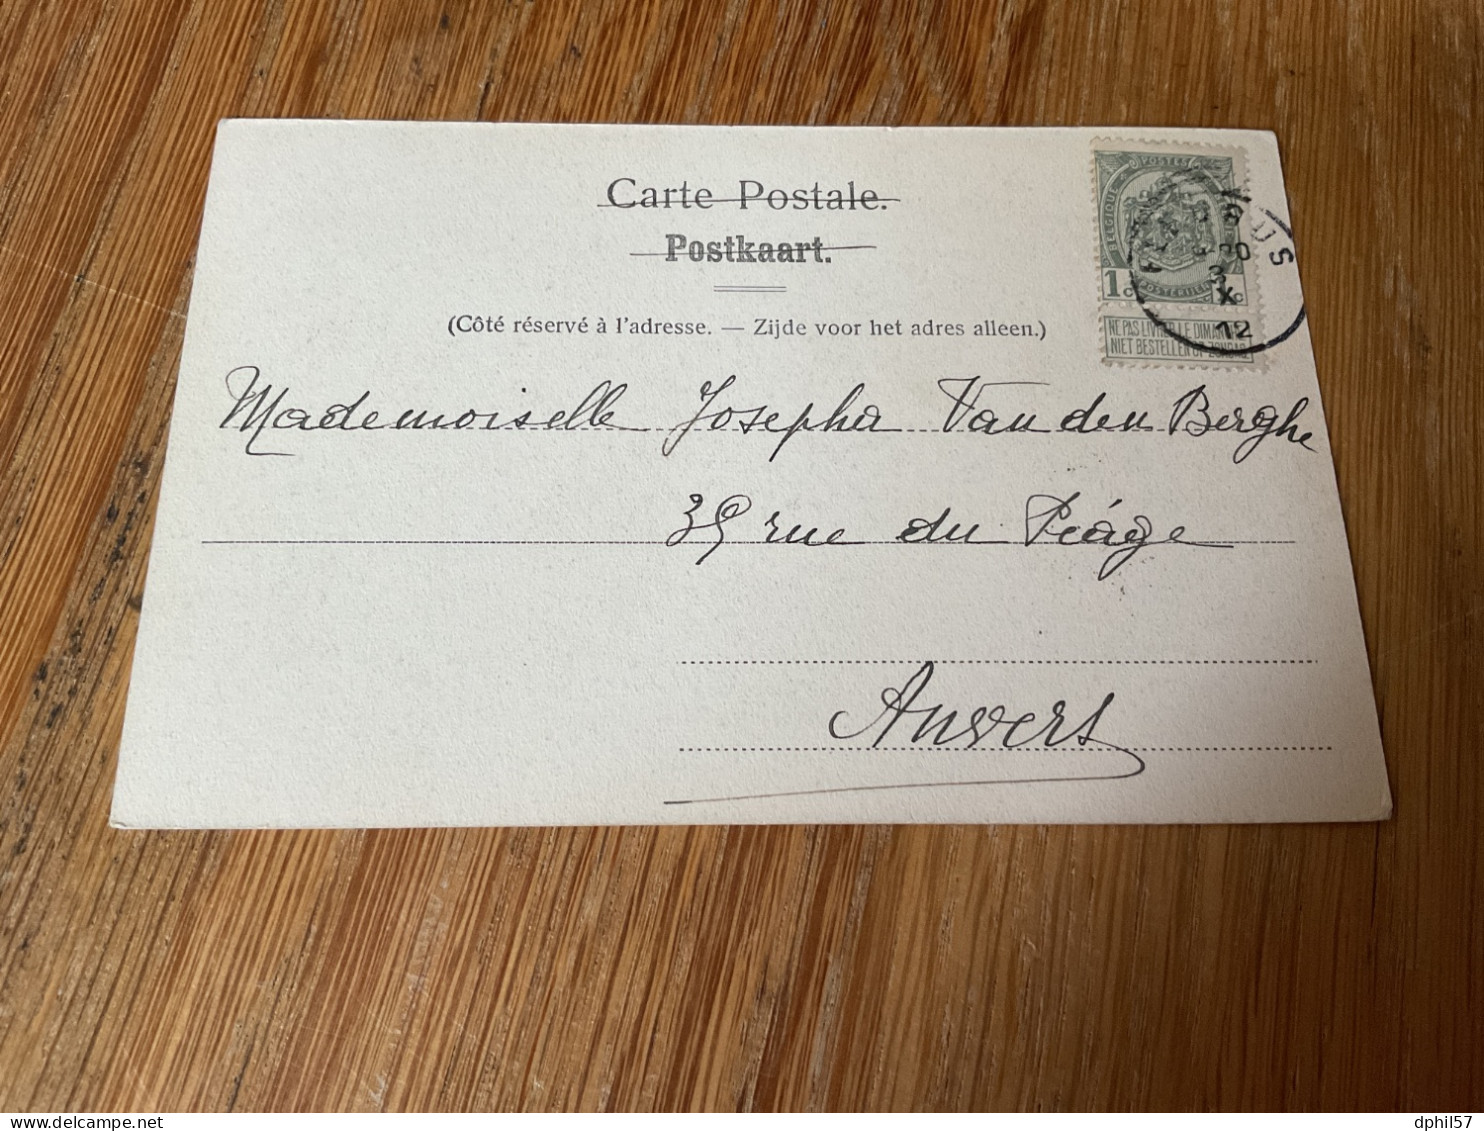 Carte Postale.
Postkaart.
(Côté réservé à l'adresse. — Zijde voor het adres alleen.)
POSTES
BELGIQUE
POSTERIJEN
1c
NE PAS LIVRER LE DIMAN
NIET BESTELLEN OP ZONDAG
8
3
X
12
Mademoiselle Josepha Van den Berghe
35 rue du Péage
Anvers
www.delcampe.net
dphil57